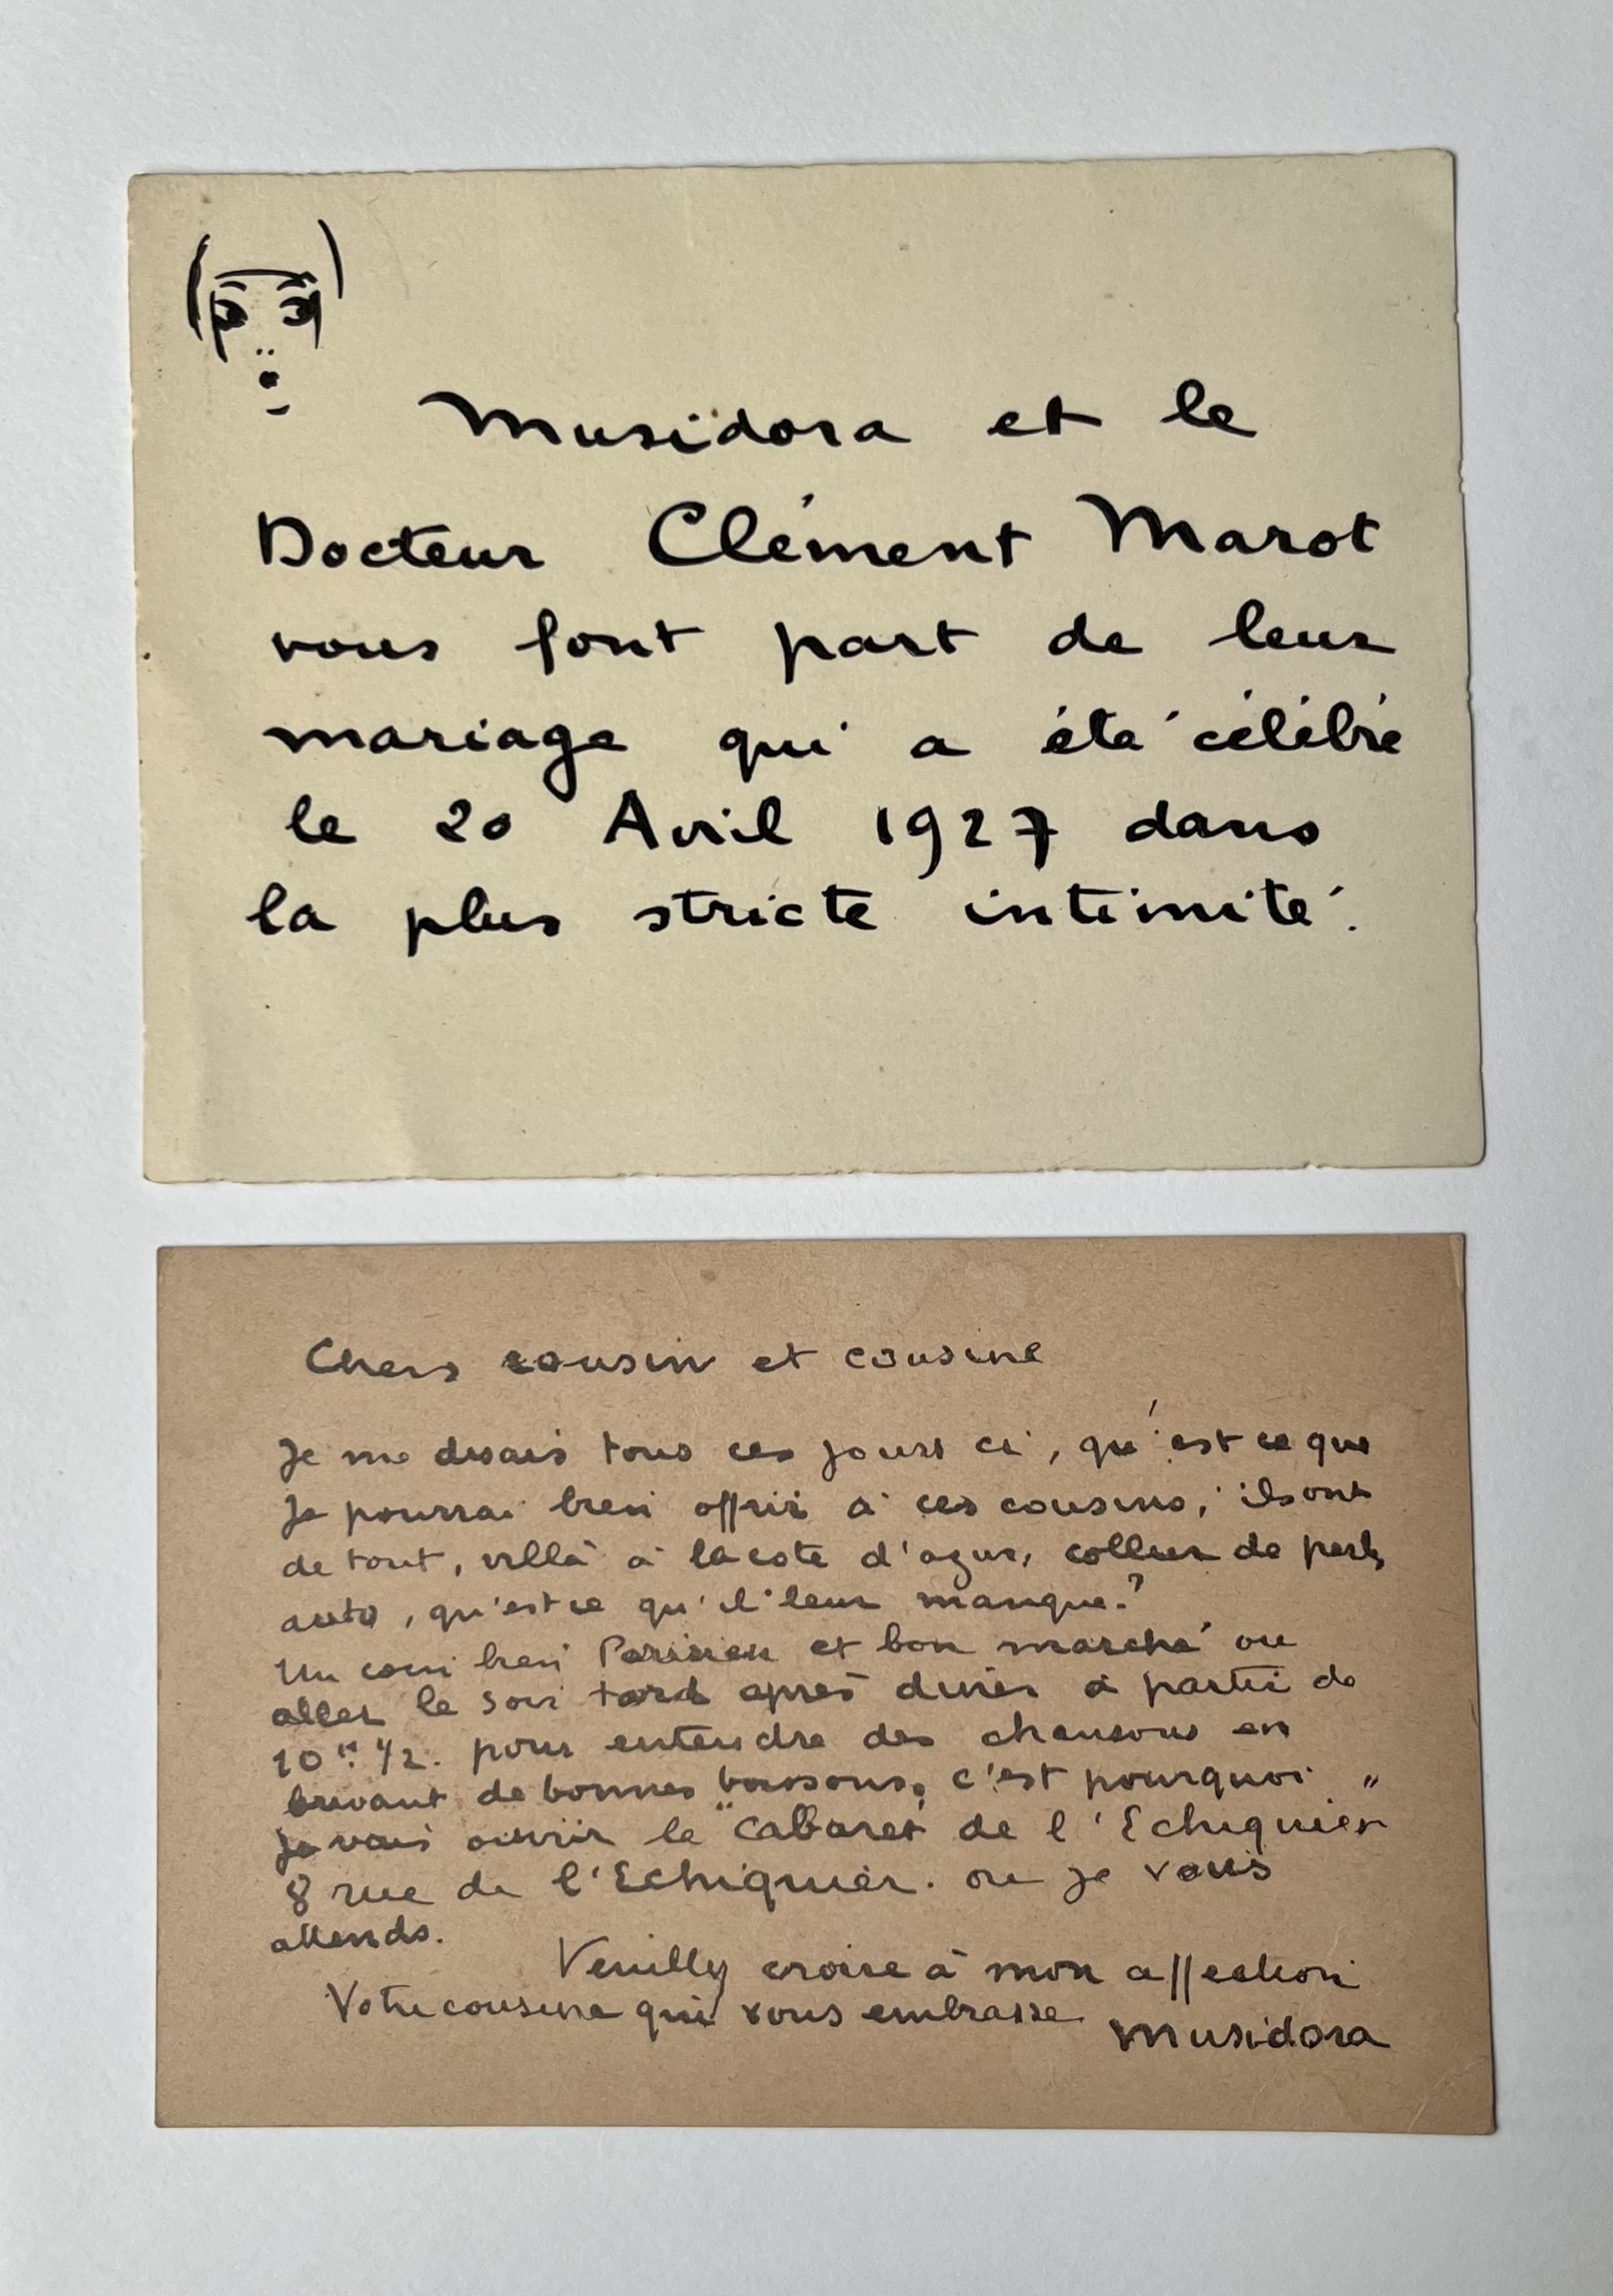 Musidora et le
Docteur Clément Marot
vous font part de leur
mariage qui a été célébré
le 20 Avril 1927 dans
la plus stricte intimité.
Chers cousin et cousine
Je me disais tous ces jours ci, qu'est ce que
Je pourrai bien offrir à ces cousins, ils ont
de tout, villa à la cote d'azur, collier de perls,
auto, qu'est ce qu'il leur manque?
Un coin bien Parisien et bon marché ou
aller le soir tard après diner à partir de
10 H 1/2. pour entendre des chansons en
buvant de bonnes boissons, c'est pourquoi
Je vais ouvrir le "Cabaret de l'Echiquier"
8 rue de l'Echiquier. ou je vous
attends.
Veuilly croire à mon affection
Votre cousine qui vous embrasse
Musidora